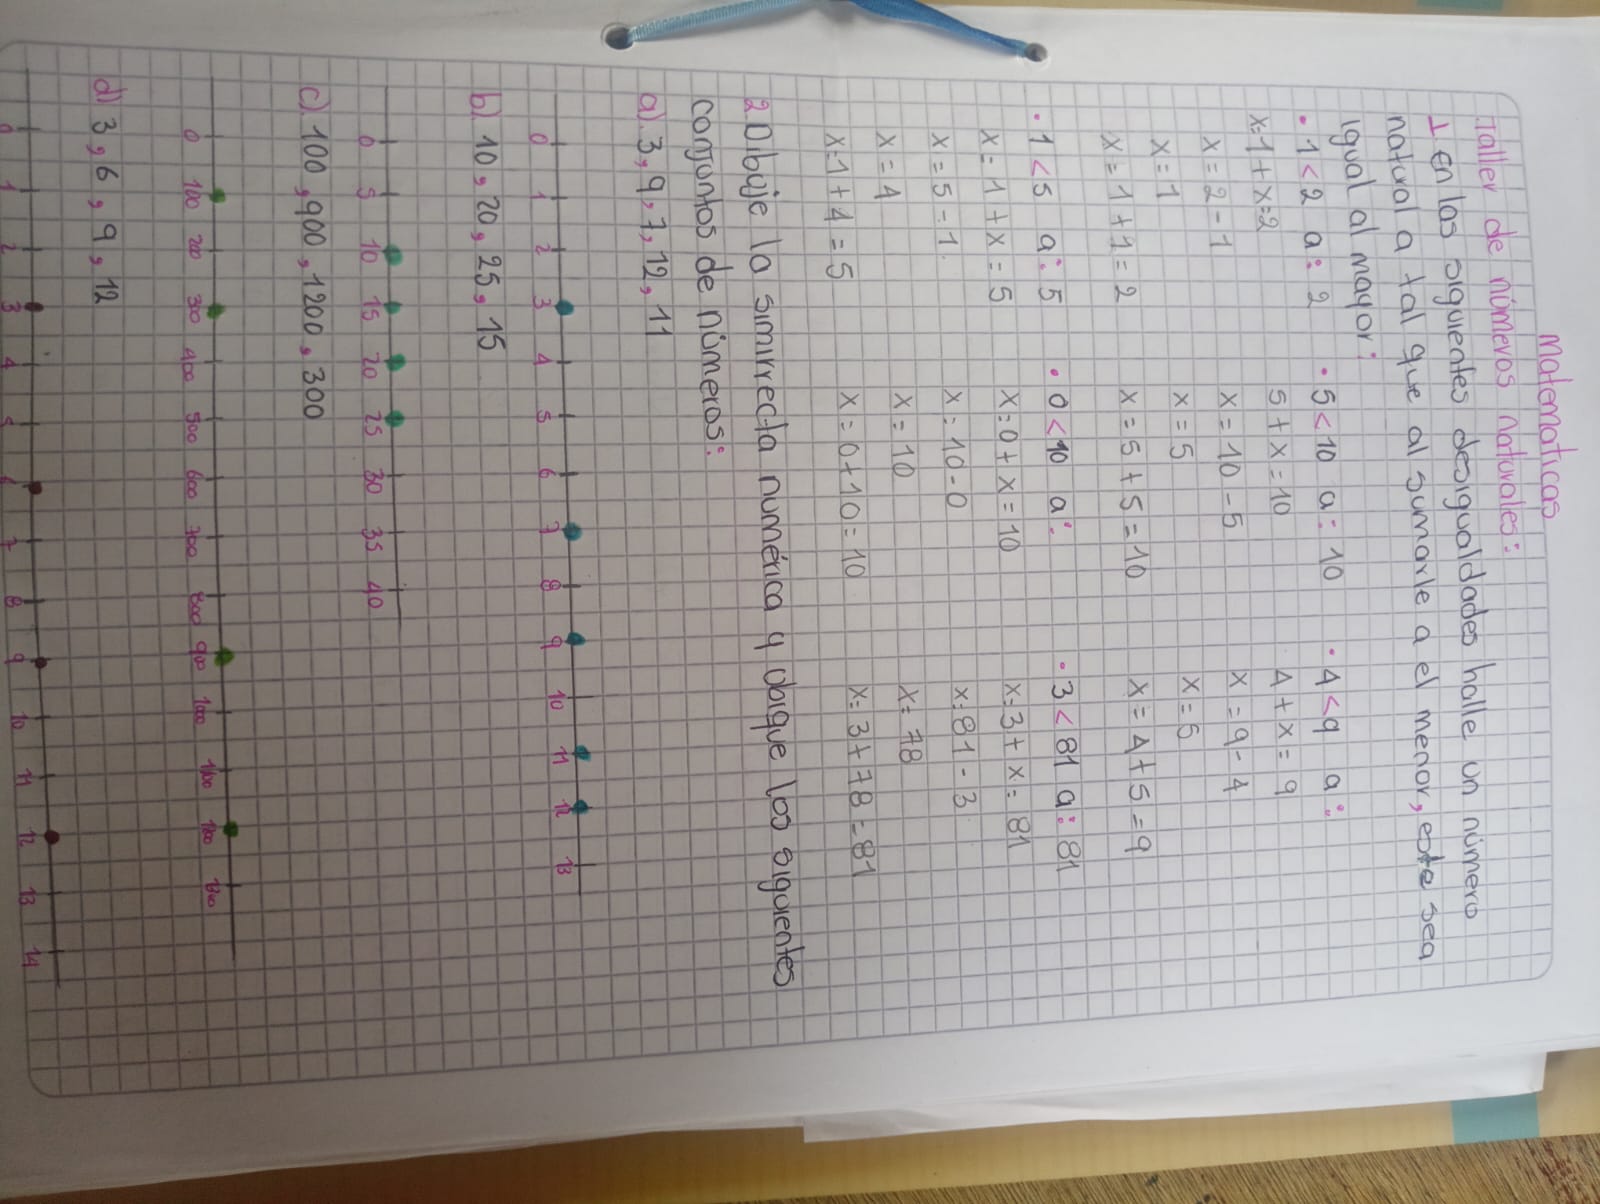 Matematicas
Taller de números naturales:
1 en las siguientes desigualdades halle un número
natural a tal que al sumarle a el menor, este sea
igual al mayor:
• 1 < 2 a: 2
• 5 < 10 a: 10
• 4 < 9 a:
x=1+x=2
5+x=10
4+x=9
x=2-1
x=10-5
x=9-4
x=1
x=5
x=5
x=1+1=2
x=5+5=10
x=4+5=9
• 1 < 5 a: 5
• 0 < 10 a:
• 3 < 81 a: 81
x=1+x=5
x=0+x=10
x=3+x=81
x=5-1
x=10-0
x=81-3
x=4
x=10
x=78
x=1+4=5
x=0+10=10
x=3+78=81
2. Dibuje la simirrecta numérica y daique los siguientes
conjuntos de números:
a) 3, 9, 7, 12, 11
0 1 2 3 4 5 6 7 8 9 10 11 12 13
b) 10, 20, 25, 15
0 5 10 15 20 25 30 35 40
c) 100, 900, 1200, 300
0 100 200 300 400 500 600 700 800 900 1000 1100 1200 1300
d) 3, 6, 9, 12
0 1 2 3 4 5 6 7 8 9 10 11 12 13 14